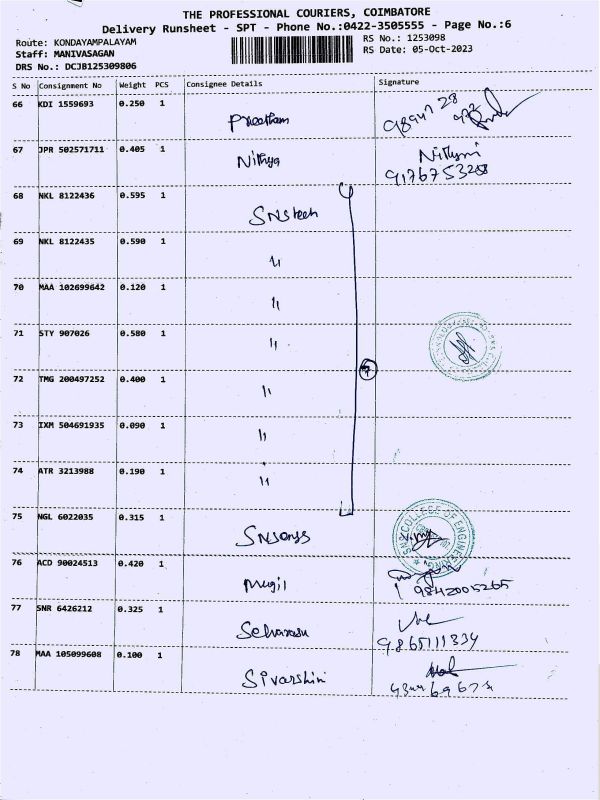 THE PROFESSIONAL COURIERS, COIMBATORE
Delivery Runsheet - SPT - Phone No.:0422-3505555 - Page No.:6
Route: KONDAYAMPALAYAM
RS No.: 1253098
Staff: MANIVASAGAN
RS Date: 05-Oct-2023
DRS No.: DCJB125309806
S No Consignment No Weight PCS Consignee Details Signature
66 KDI 1559693 0.250 1 Preetham
67 JPR 502571711 0.405 1 Nithya
9176753288
68 NKL 8122436 0.595 1 SNStech
69 NKL 8122435 0.590 1 "
70 MAA 102699642 0.120 1 "
71 STY 907026 0.580 1 "
72 TMG 200497252 0.400 1 "
73 IXM 504691935 0.090 1 "
74 ATR 3213988 0.190 1 "
75 NGL 6022035 0.315 1
SNS COLLEGE OF ENGINEERING
76 ACD 90024513 0.420 1 Mugil
9842005265
77 SNR 6426212 0.325 1
9865111334
78 MAA 105099608 0.100 1 Sivarshini